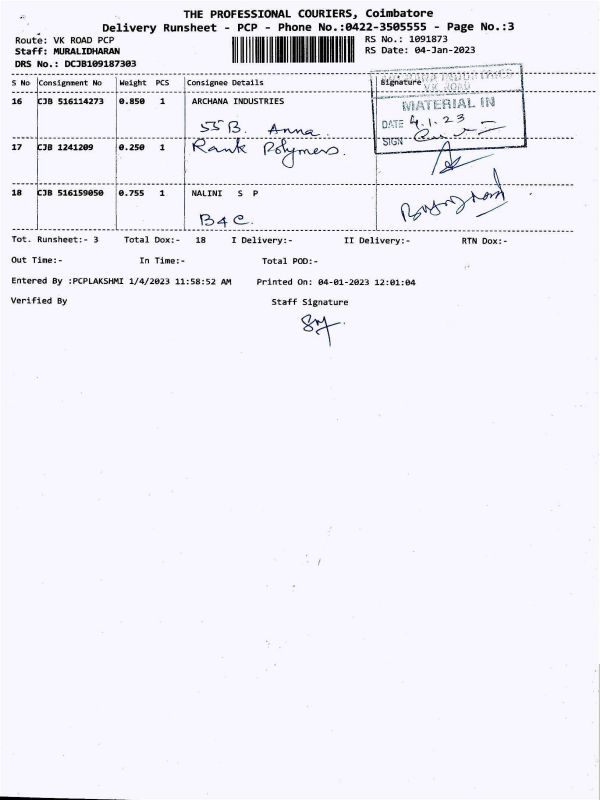 THE PROFESSIONAL COURIERS, Coimbatore
Delivery Runsheet - PCP - Phone No.:0422-3505555 - Page No.:3
Route: VK ROAD PCP
RS No.: 1091873
Staff: MURALIDHARAN
RS Date: 04-Jan-2023
DRS No.: DCJB109187303
S No Consignment No Weight PCS Consignee Details Signature
VK ROAD
16 CJB 516114273 0.850 1 ARCHANA INDUSTRIES
MATERIAL IN
55 B. Anna.
DATE 4.1.23
SIGN
17 CJB 1241209 0.250 1 Rank Polymers.
18 CJB 516159050 0.755 1 NALINI S P
B4C.
Tot. Runsheet:- 3 Total Dox:- 18 I Delivery:- II Delivery:- RTN Dox:-
Out Time:- In Time:- Total POD:-
Entered By :PCPLAKSHMI 1/4/2023 11:58:52 AM Printed On: 04-01-2023 12:01:04
Verified By Staff Signature